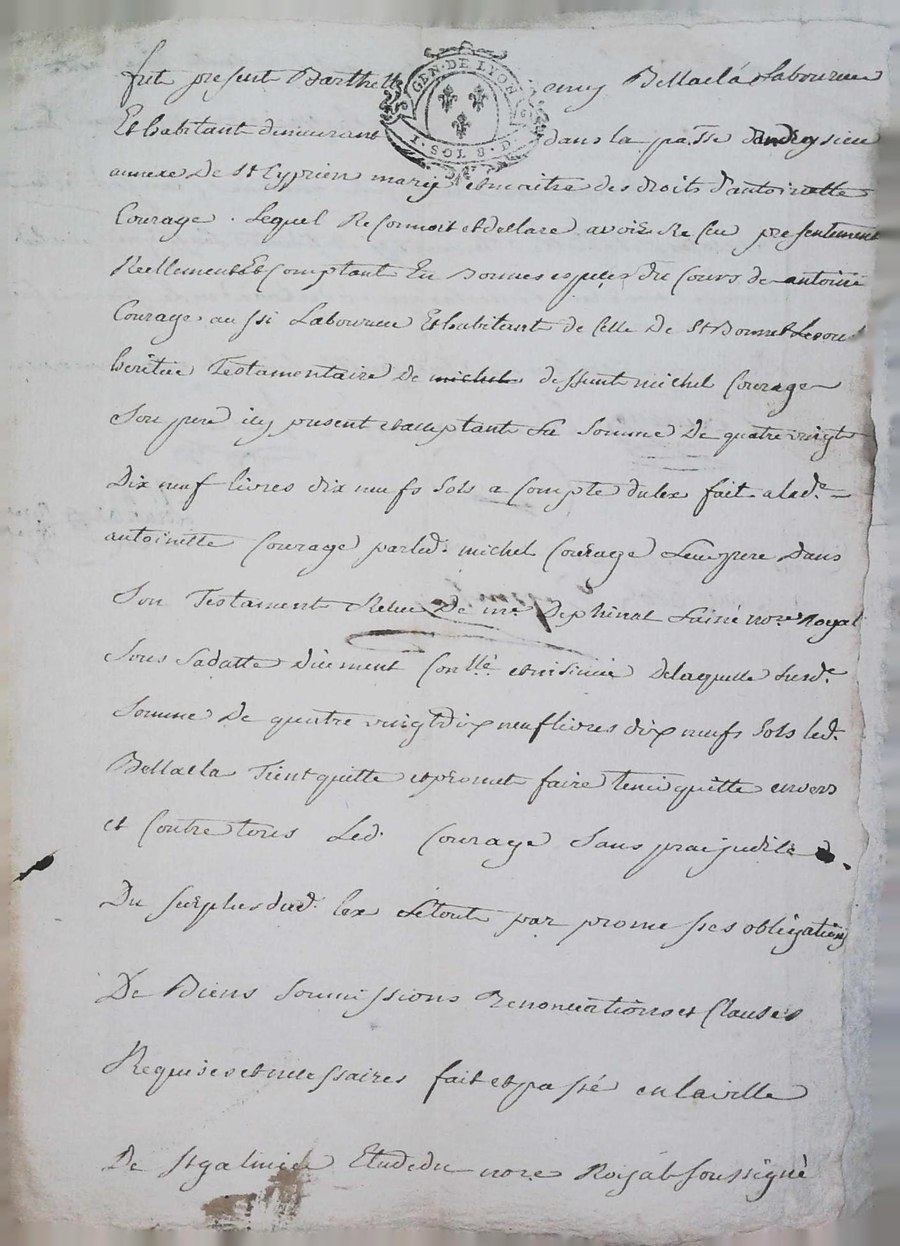 GEN. DE LYON
1. SOL 8. D.
fut present Barthelemy Bellacla Laboureur
Et habitant demeurant dans la pa.sse dandresieu
annexe de St Cyprien mary et maitre des droits d'antoinette
Courage. Lequel Reconnoit et dellare avoir Receu presentement
Reellement Et Comptant En Bonnes espeçes du Cours de antoine
Courage aussi Laboureur Et habitant de Celle de St Bonnet Les oul
heritier Testamentaire de michel deffunt michel Courage
Son pere icy present et acceptant La Somme De quatre vingt
Dix neuf livres dix neufs Sols a Compte du lex fait a lad.e
antoinette Courage par led. michel Courage Leur pere dans
Son Testament Receu De me Dephinat Lainé nore Royal
Sous Sadatte Düement Conllé et insinué De laquelle Susd.e
Somme De quatre vingt dix neuf livres dix neufs Sols led.
Bellacla Tient quitte et promet faire tenir quitte envers
et Contre tous Led. Courage Sans praejudice
Du Surplus dud. lex Le tout par promesses obligations
De Biens Soumissions Renonciations et Clauses
Requises et necessaires fait et passé en la ville
De St galmier Etude du nore Roÿal Soussigné